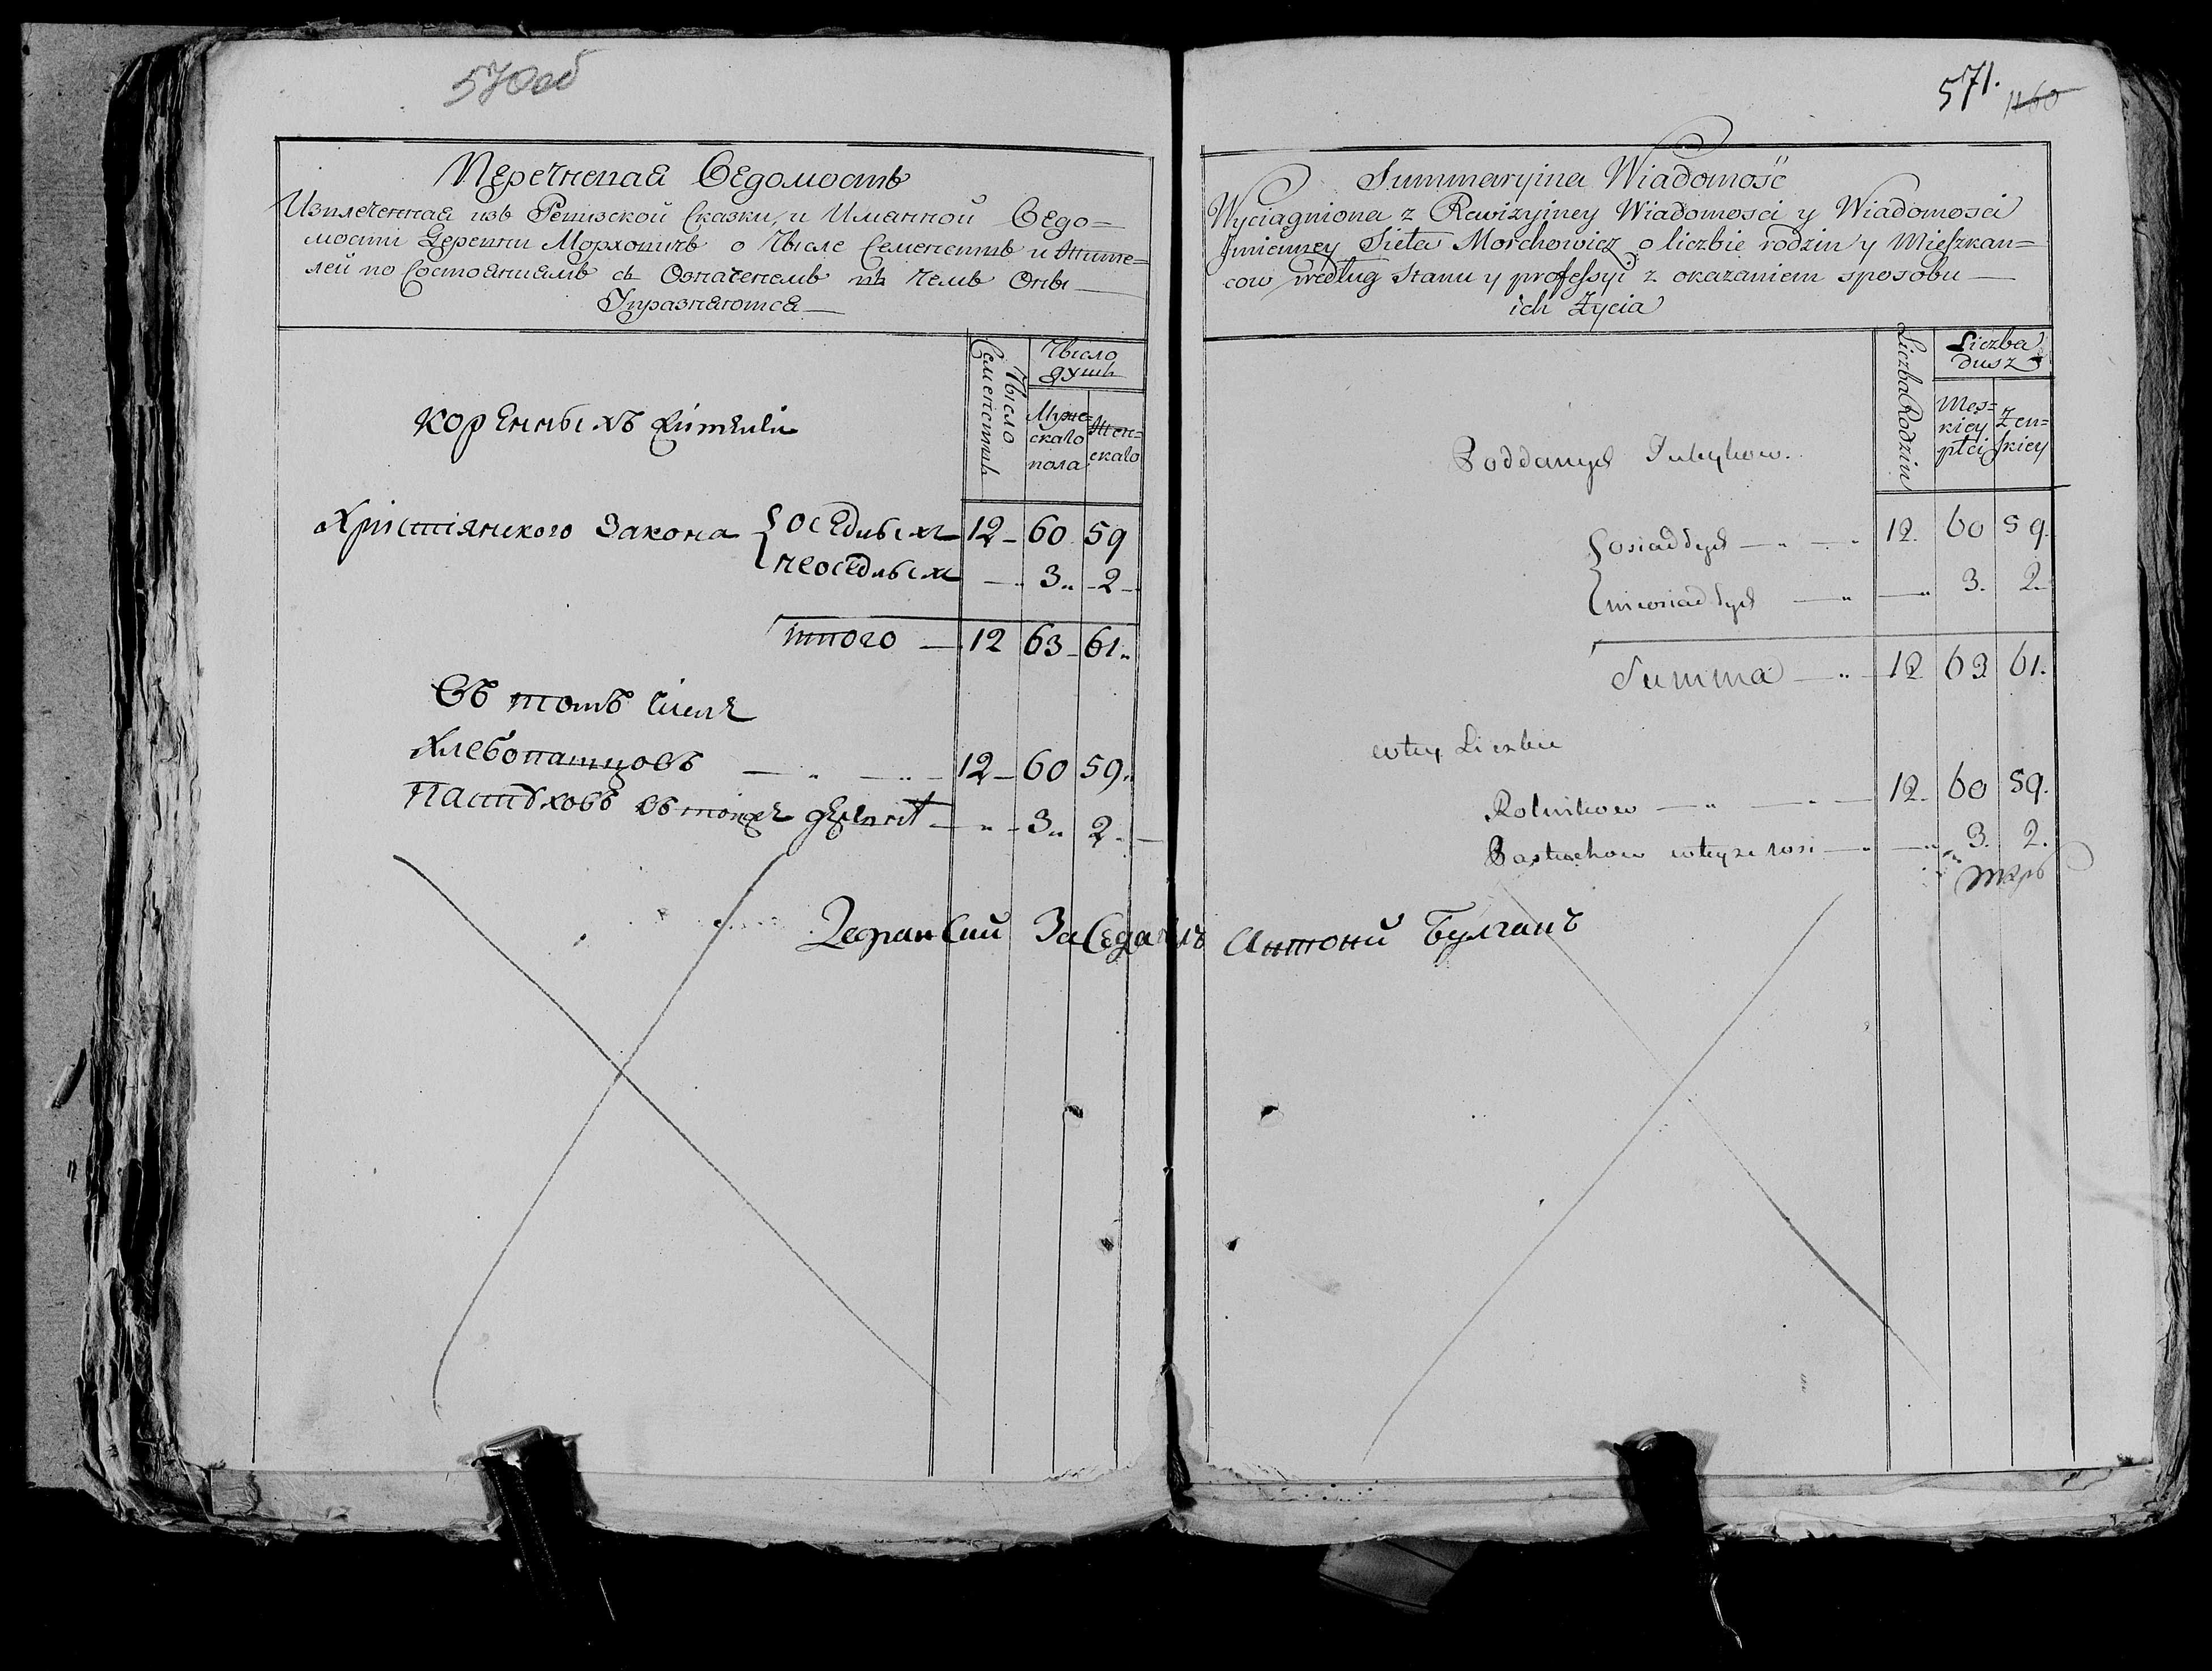 570 об
Перечневая Ведомость
Извлеченная изъ Ревизской Сказки, и Имянной Ведо=
мости Деревни Морховичъ о Числе Семенствъ и Жите=
лей по Состояниямъ съ Означенемъ въ чемъ Оны
Упразняютса
Число Семенствъ
Число душъ
Муже=
скаго
пола
Жен=
скаго
Коренныхъ жителей
Христіянского Закона { оседлыхъ 12 60 59
{ неоседлыхъ — 3 2
итого 12 63 61
Въ томъ числе
Хлебопашцовъ 12 60 59
Пастуховъ въ тойже — 3 2
Заседатель Антоний
571.
1160
Summaryjna Wiadomość
Wyciągniona z Rewizyiney Wiadomosci y Wiadomosci
Jmienney Sieła Morchowicz o liczbie rodzin y Mieszkan=
cow według stanu y professyi z okazaniem sposobu
ich Życia
Liczba Rodzin
Liczba
dusz
Męs=
kiey
płci
Żen=
skiey
Poddanych
{ osiadłych 12. 60 59.
{ nieosiadłych — 3. 2.
Summa 12 63 61.
wtey Liczbie
Rolnikow 12. 60 59.
Pastuchow wteyze wsi — 3. 2.